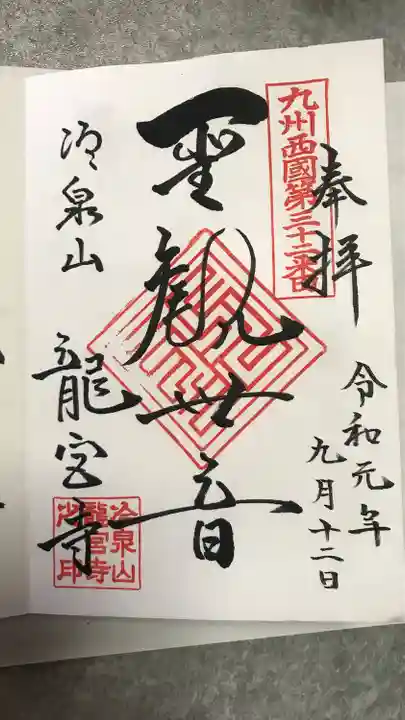 奉拝
九州西國第三十二番
令和元年
九月十二日
聖観世音
冷泉山 龍宮寺
冷泉山
龍宮寺